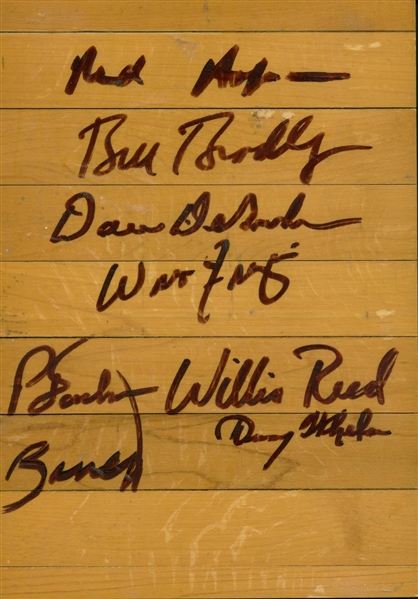 Red
Bill Bradley
Dave DeBusschere
Walt Frazier
Willis Reed
Danny Whelan
Barnett